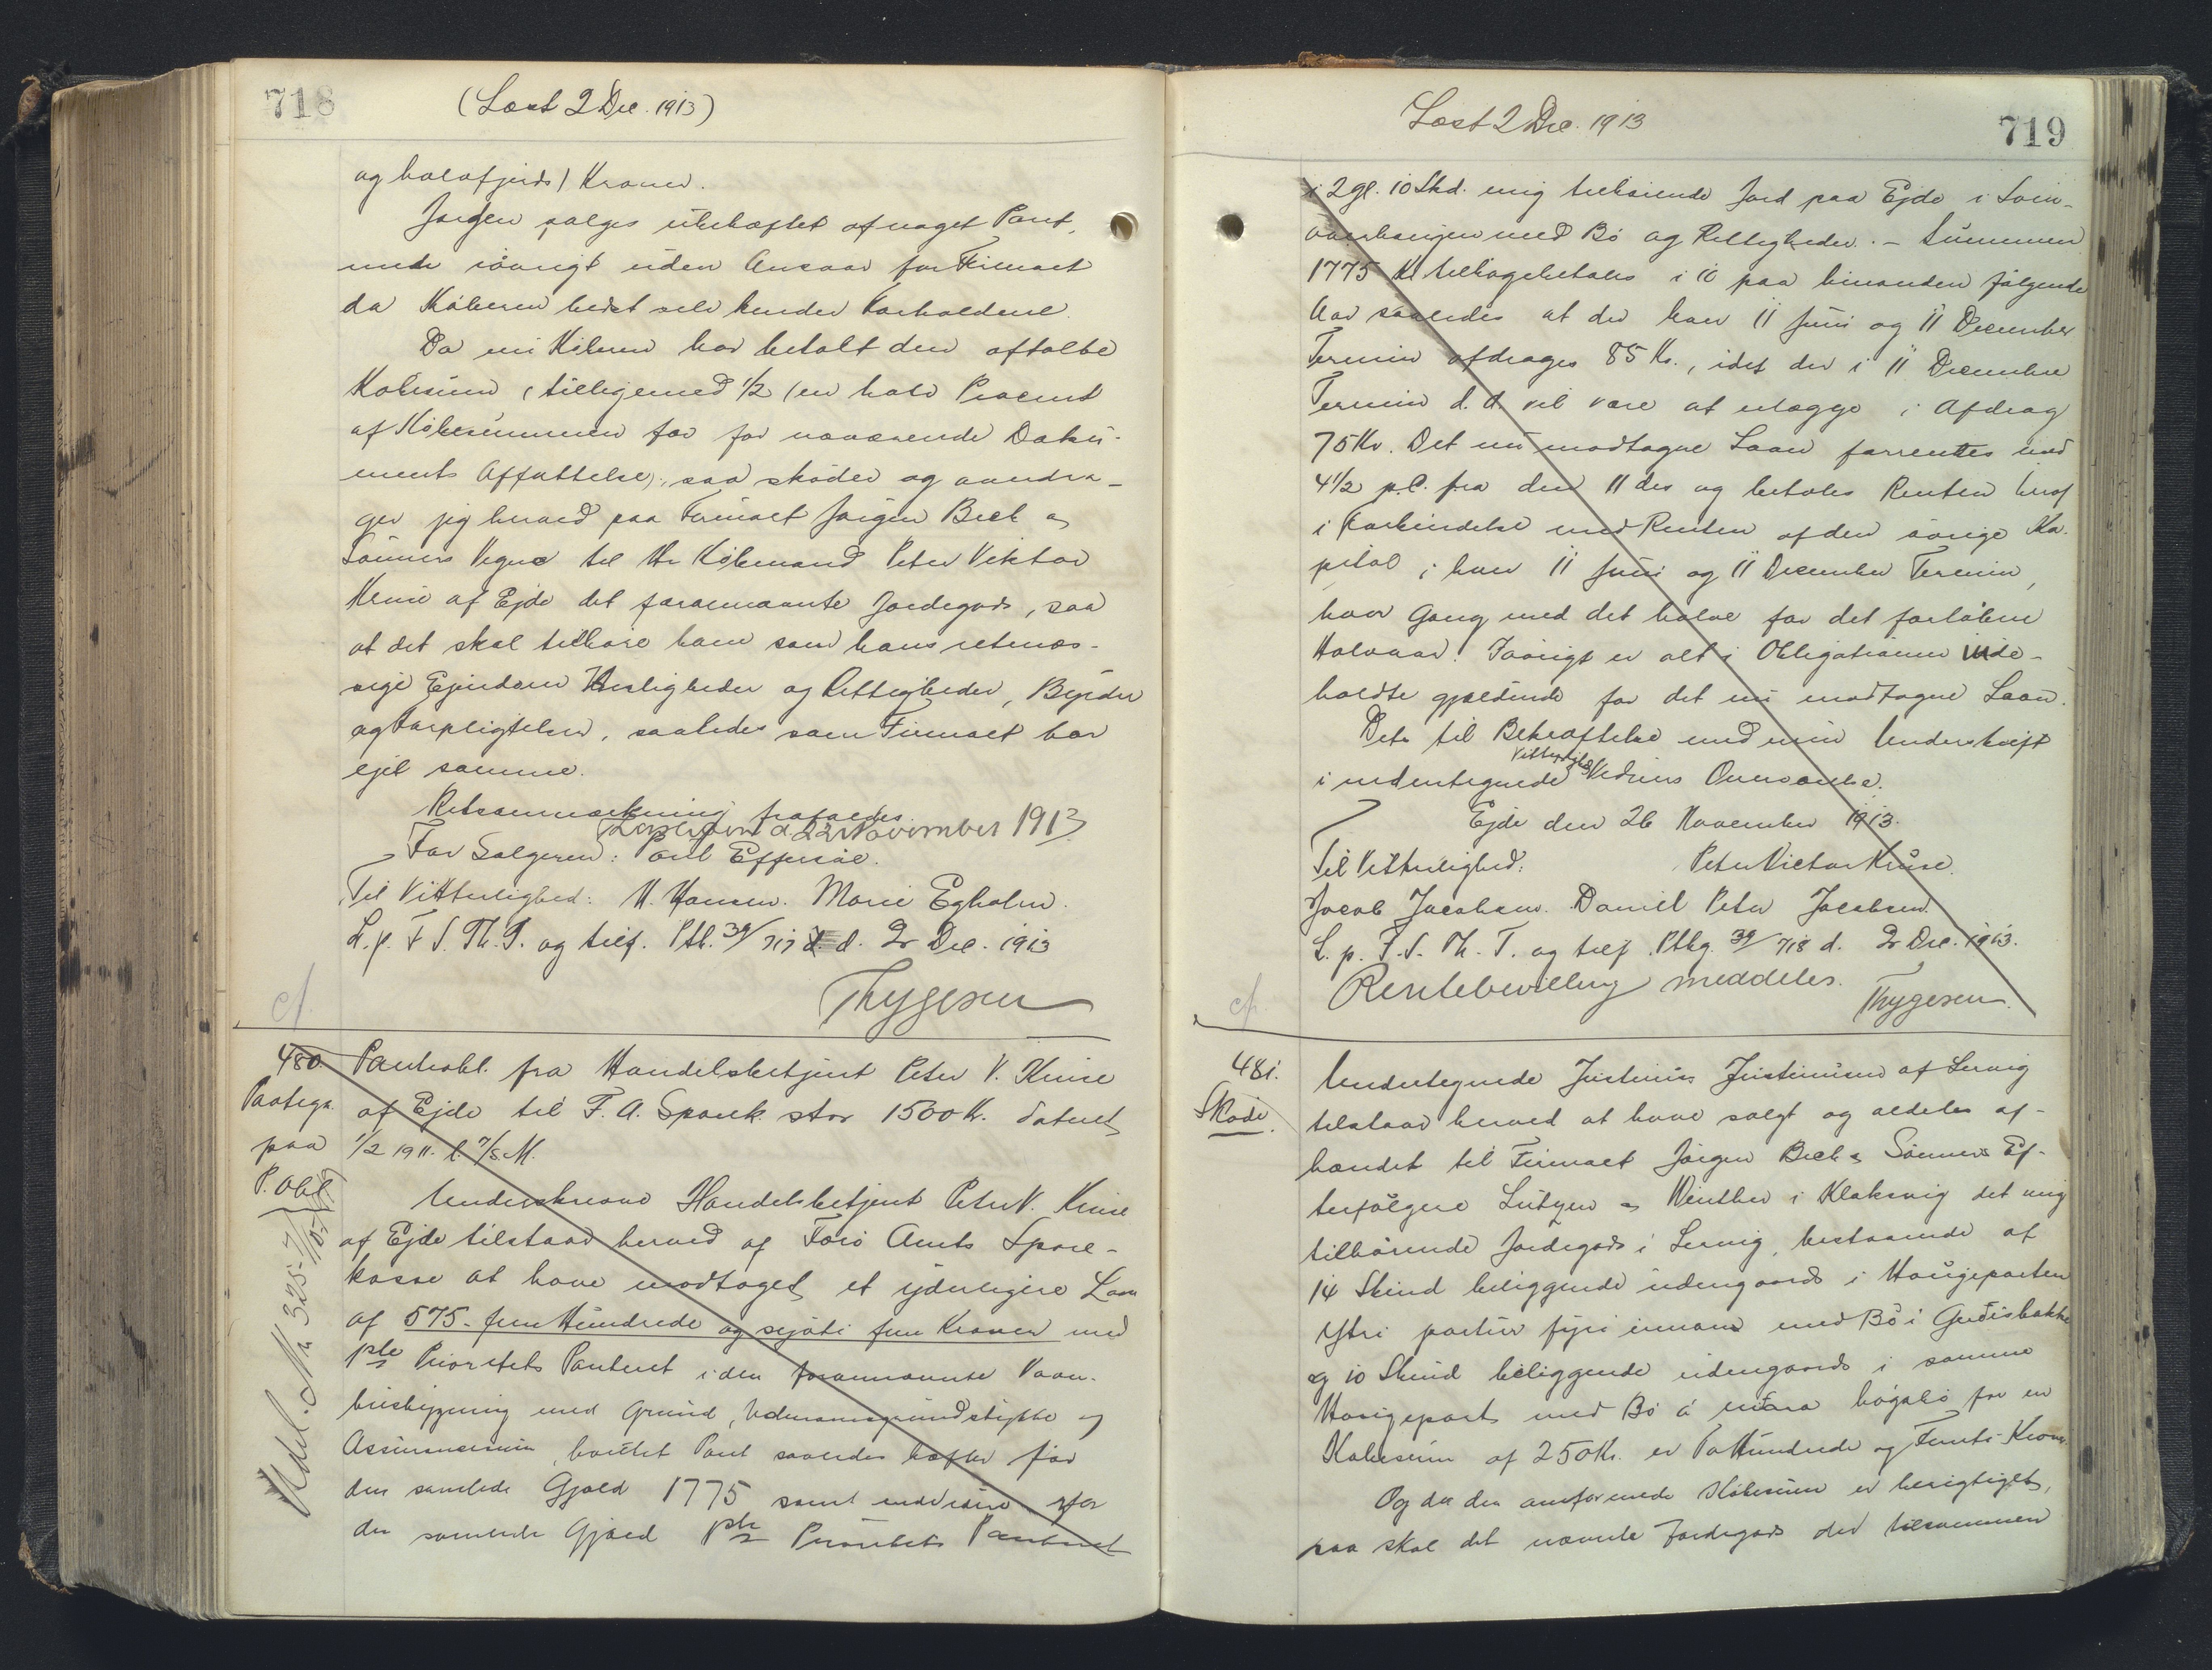 718
(Læst 2 Dec. 1913)
og halvfjerds) Kroner.
Jorden sælges ubehæftet af noget Pant,
men iøvrigt uden Ansvar for Firmaet
da Køberen bedst selv kender Forholdene.
Da nu Køberen har betalt den aftalte
Købesum (tilligemed ½ (en halv Procent
af Købesummen for for nærværende Doku-
ments Affattelse), saa skøder og overdra-
ger jeg herved paa Firmaet Jørgen Bech &
Sønners Vegne til Hr Købmand Peter Viktor
Kruse af Ejde det forannævnte Jordegods, saa
at det skal tilhøre ham som hans retmæs-
sige Ejendom Herligheder og Rettigheder, Byrder
og Forpligtelser, saaledes som Firmaet har
ejet samme.
Retsanmærkning frafaldes.
d. 22 November 1913
For Sælgeren: Poul Effersøe.
Til Vitterlighed: H. Hansen. Marie Egholm.
L. p. F. S. Th. T. og tilf. Ptb. 39/717 d. 2 Dec. 1913
Thygesen
cf.
480.
Paategn.
paa
P. obl.
Pantobl. fra Handelsbetjent Peter V. Kruse
af Ejde til F. A. Spark. stor 1500 K. dateret
1/2 1911. l. 7/5. M.
Underskrevne Handelsbetjent Peter V. Kruse
af Ejde tilstaar herved af Færø Amts Spare-
kasse at have modtaget et yderligere Laan
af 575 - fem Hundrede og syvti fem Kroner med
1ste Prioritets Panteret i den forannævnte Vaan-
huisbygning med Grund, Udmarksgrundstykke og
Assurancesum, hvilket Pant saaledes hæfter for
den samlede Gjæld 1775 samt endvidere for
den samlede Gjæld 1ste Prioritets Panteret
Udsl. No 325 -
Læst 2 Dec. 1913
719
i 2 Gl. 10 Skd. mig tilhørende Jord paa Ejde i Svin-
aarhaugen med Bø og Rettigheder. - Summen
1775 K tilbagebetales i 10 paa hinanden følgende
Aar saaledes at der hver 11 Juni og 11 December
Termin afdrages 85 Kr., idet der i 11 December
Termin d. A. vil være at erlægge i Afdrag
75 Kr. Det nu modtagne Laan forrentes med
4½ p.C. fra den 11 des og betales Renten heraf
i Forbindelse med Renten af den øvrige Ka-
pital i hver 11 Juni og 11 December Termin,
hver Gang med det halve for det forløbne
Halvaar. Iøvrigt er alt i Obligationen inde-
holdte gjældende for det nu modtagne Laan.
Dets til Bekræftelse med min Underskrift
i undertegnede Vitterligheds Vidners Overværelse.
Ejde den 26 November 1913.
Til Vitterlighed: Peter Victor Kruse.
Jacob Jacobsen. Daniel Peter Jacobsen.
L. p. F. S. Th. T. og tilf. Ptbg. 39/718 d. 2 Dec. 1913.
Rentebevilling meddeles.
Thygesen.
cf.
481.
Skøde.
Undertegnede Justinus Justinussen af Lervig
tilstaar herved at have solgt og aldeles af-
hændet til Firmaet Jørgen Bech & Sønners Ef-
terfølgere Lützen & Winther i Klaksvig det mig
tilhørende Jordegods i Lervig, bestaaende af
14 Skind beliggende udengaards i Haugeparten
Ytri partur fyri innan med Bø i Gerdisbakke
og 10 Skind beliggende udengaards i samme
Haugepart med Bø á høgabø for en
Købesum af 250 Kr. er To Hundrede og Femti Kroner.
Og da den anførmede Købesum er berigtiget,
saa skal det nævnte Jordegods der tilsammen